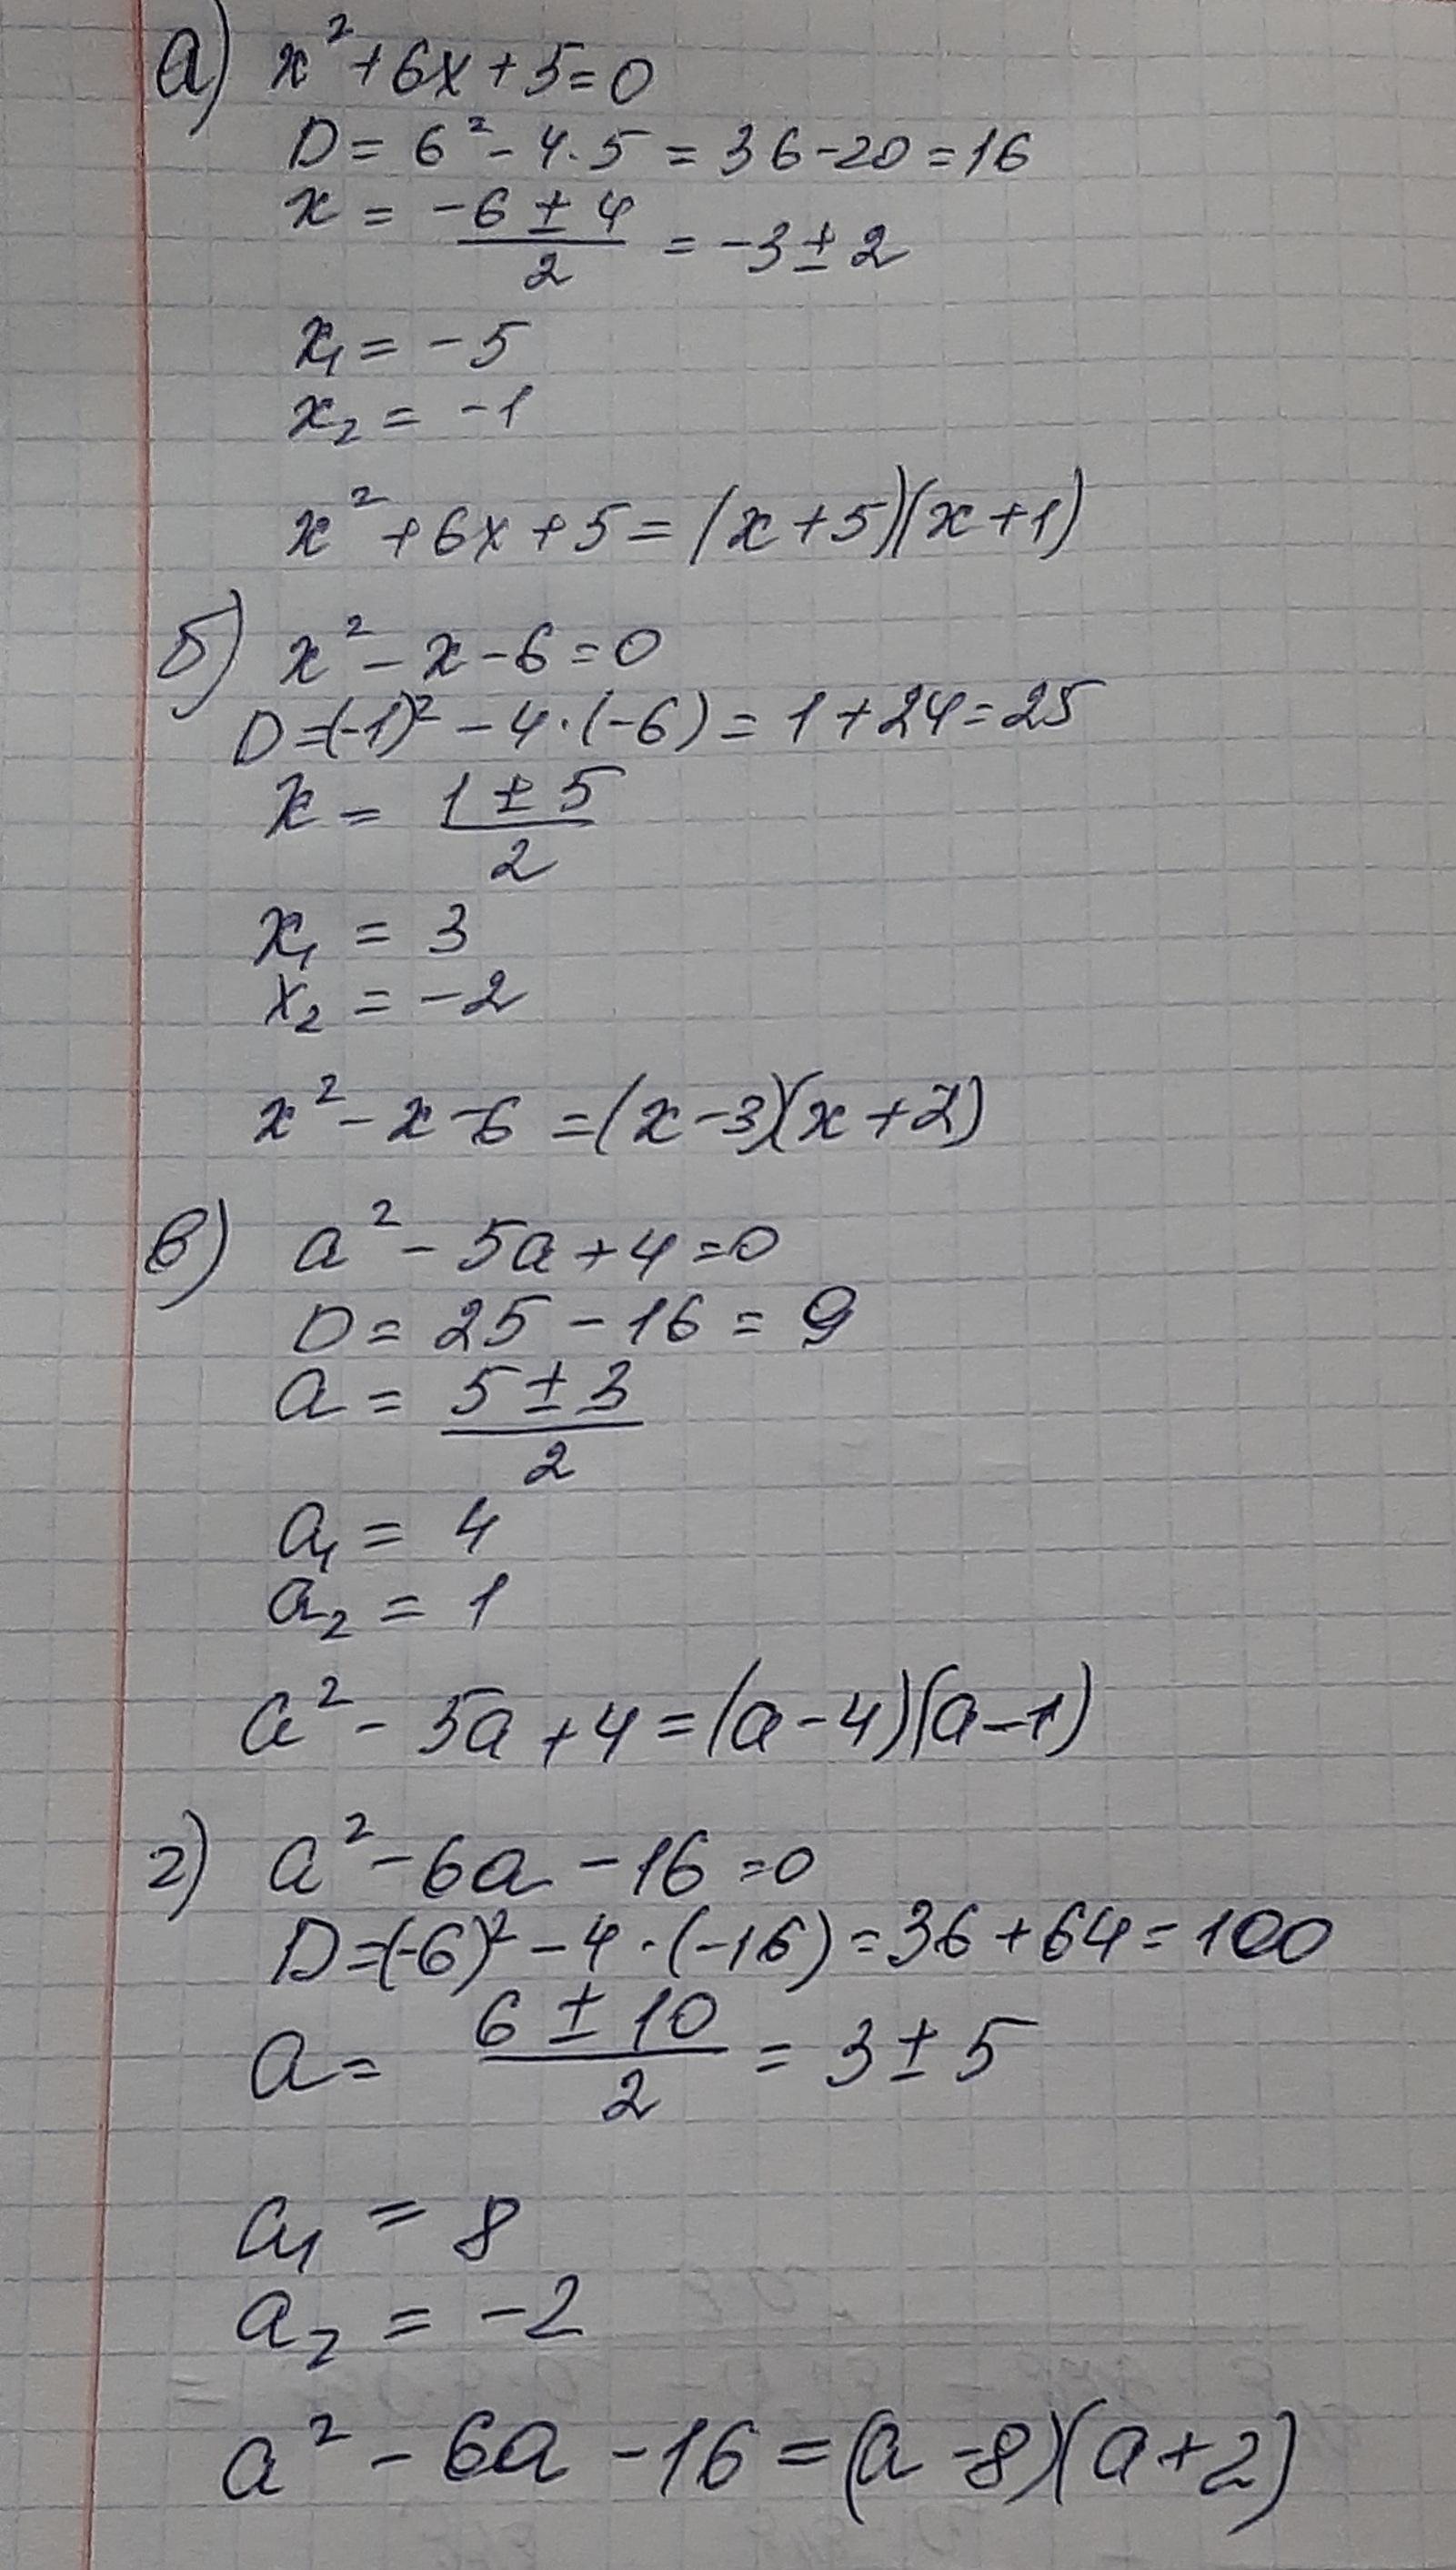 а) x² + 6x + 5 = 0
D = 6² - 4·5 = 36 - 20 = 16
x = (-6 ± 4)/2 = -3 ± 2
x₁ = -5
x₂ = -1
x² + 6x + 5 = (x + 5)(x + 1)
б) x² - x - 6 = 0
D = (-1)² - 4·(-6) = 1 + 24 = 25
x = (1 ± 5)/2
x₁ = 3
x₂ = -2
x² - x - 6 = (x - 3)(x + 2)
в) a² - 5a + 4 = 0
D = 25 - 16 = 9
a = (5 ± 3)/2
a₁ = 4
a₂ = 1
a² - 5a + 4 = (a - 4)(a - 1)
г) a² - 6a - 16 = 0
D = (-6)² - 4·(-16) = 36 + 64 = 100
a = (6 ± 10)/2 = 3 ± 5
a₁ = 8
a₂ = -2
a² - 6a - 16 = (a - 8)(a + 2)